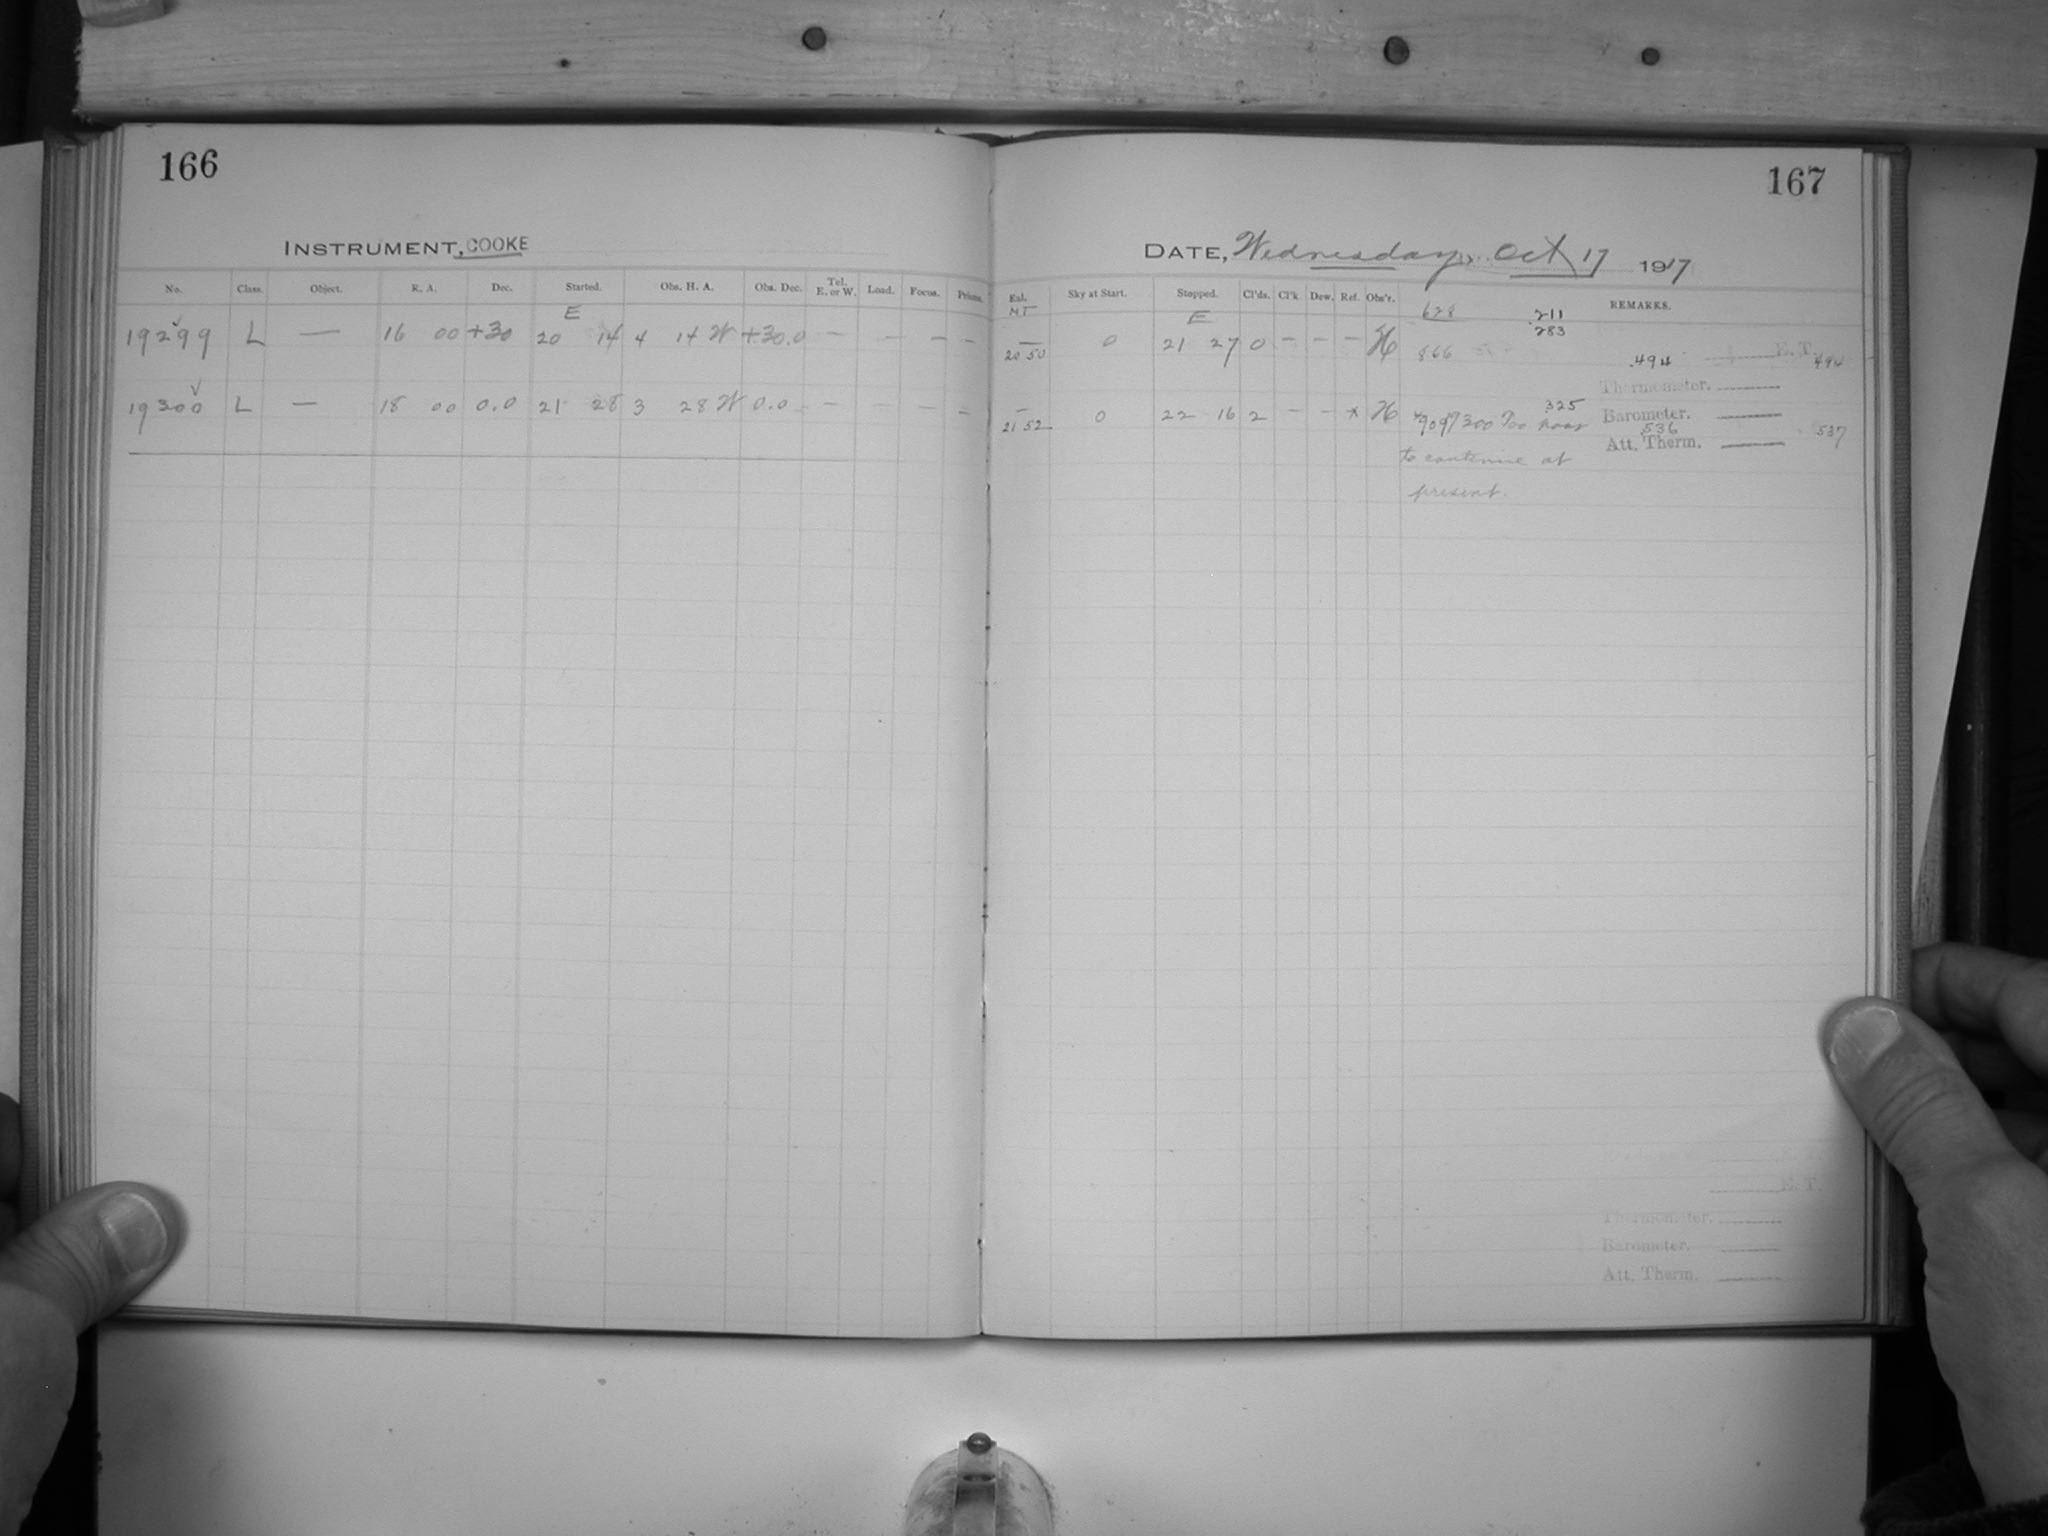 166
167
INSTRUMENT, COOKE
DATE, Wednesday, Oct 17 1917
No. Class. Object. R. A. Dec. Started. Obs. H. A. Obs. Dec. Tel. E. or W. Load. Focus. Prisms.
Sky at Start. Stopped. Cl'ds. Cl'k Dew. Ref. Obs'r. REMARKS.
MT
E
E
628
.211
.283
19299 L — 16 00 +30 20 14 4 14 W +30.0 — — — —
20 50 0 21 27 0 — — — H 866 .494 E. T. 494
Thermometer.
19300 L — 18 00 0.0 21 28 3 28 W 0.0 — — — —
21 52 0 22 16 2 — — x H
325
Barometer.
.536
Att. Therm. .537
to continue at
present.
E. T.
Thermometer.
Barometer.
Att. Therm.